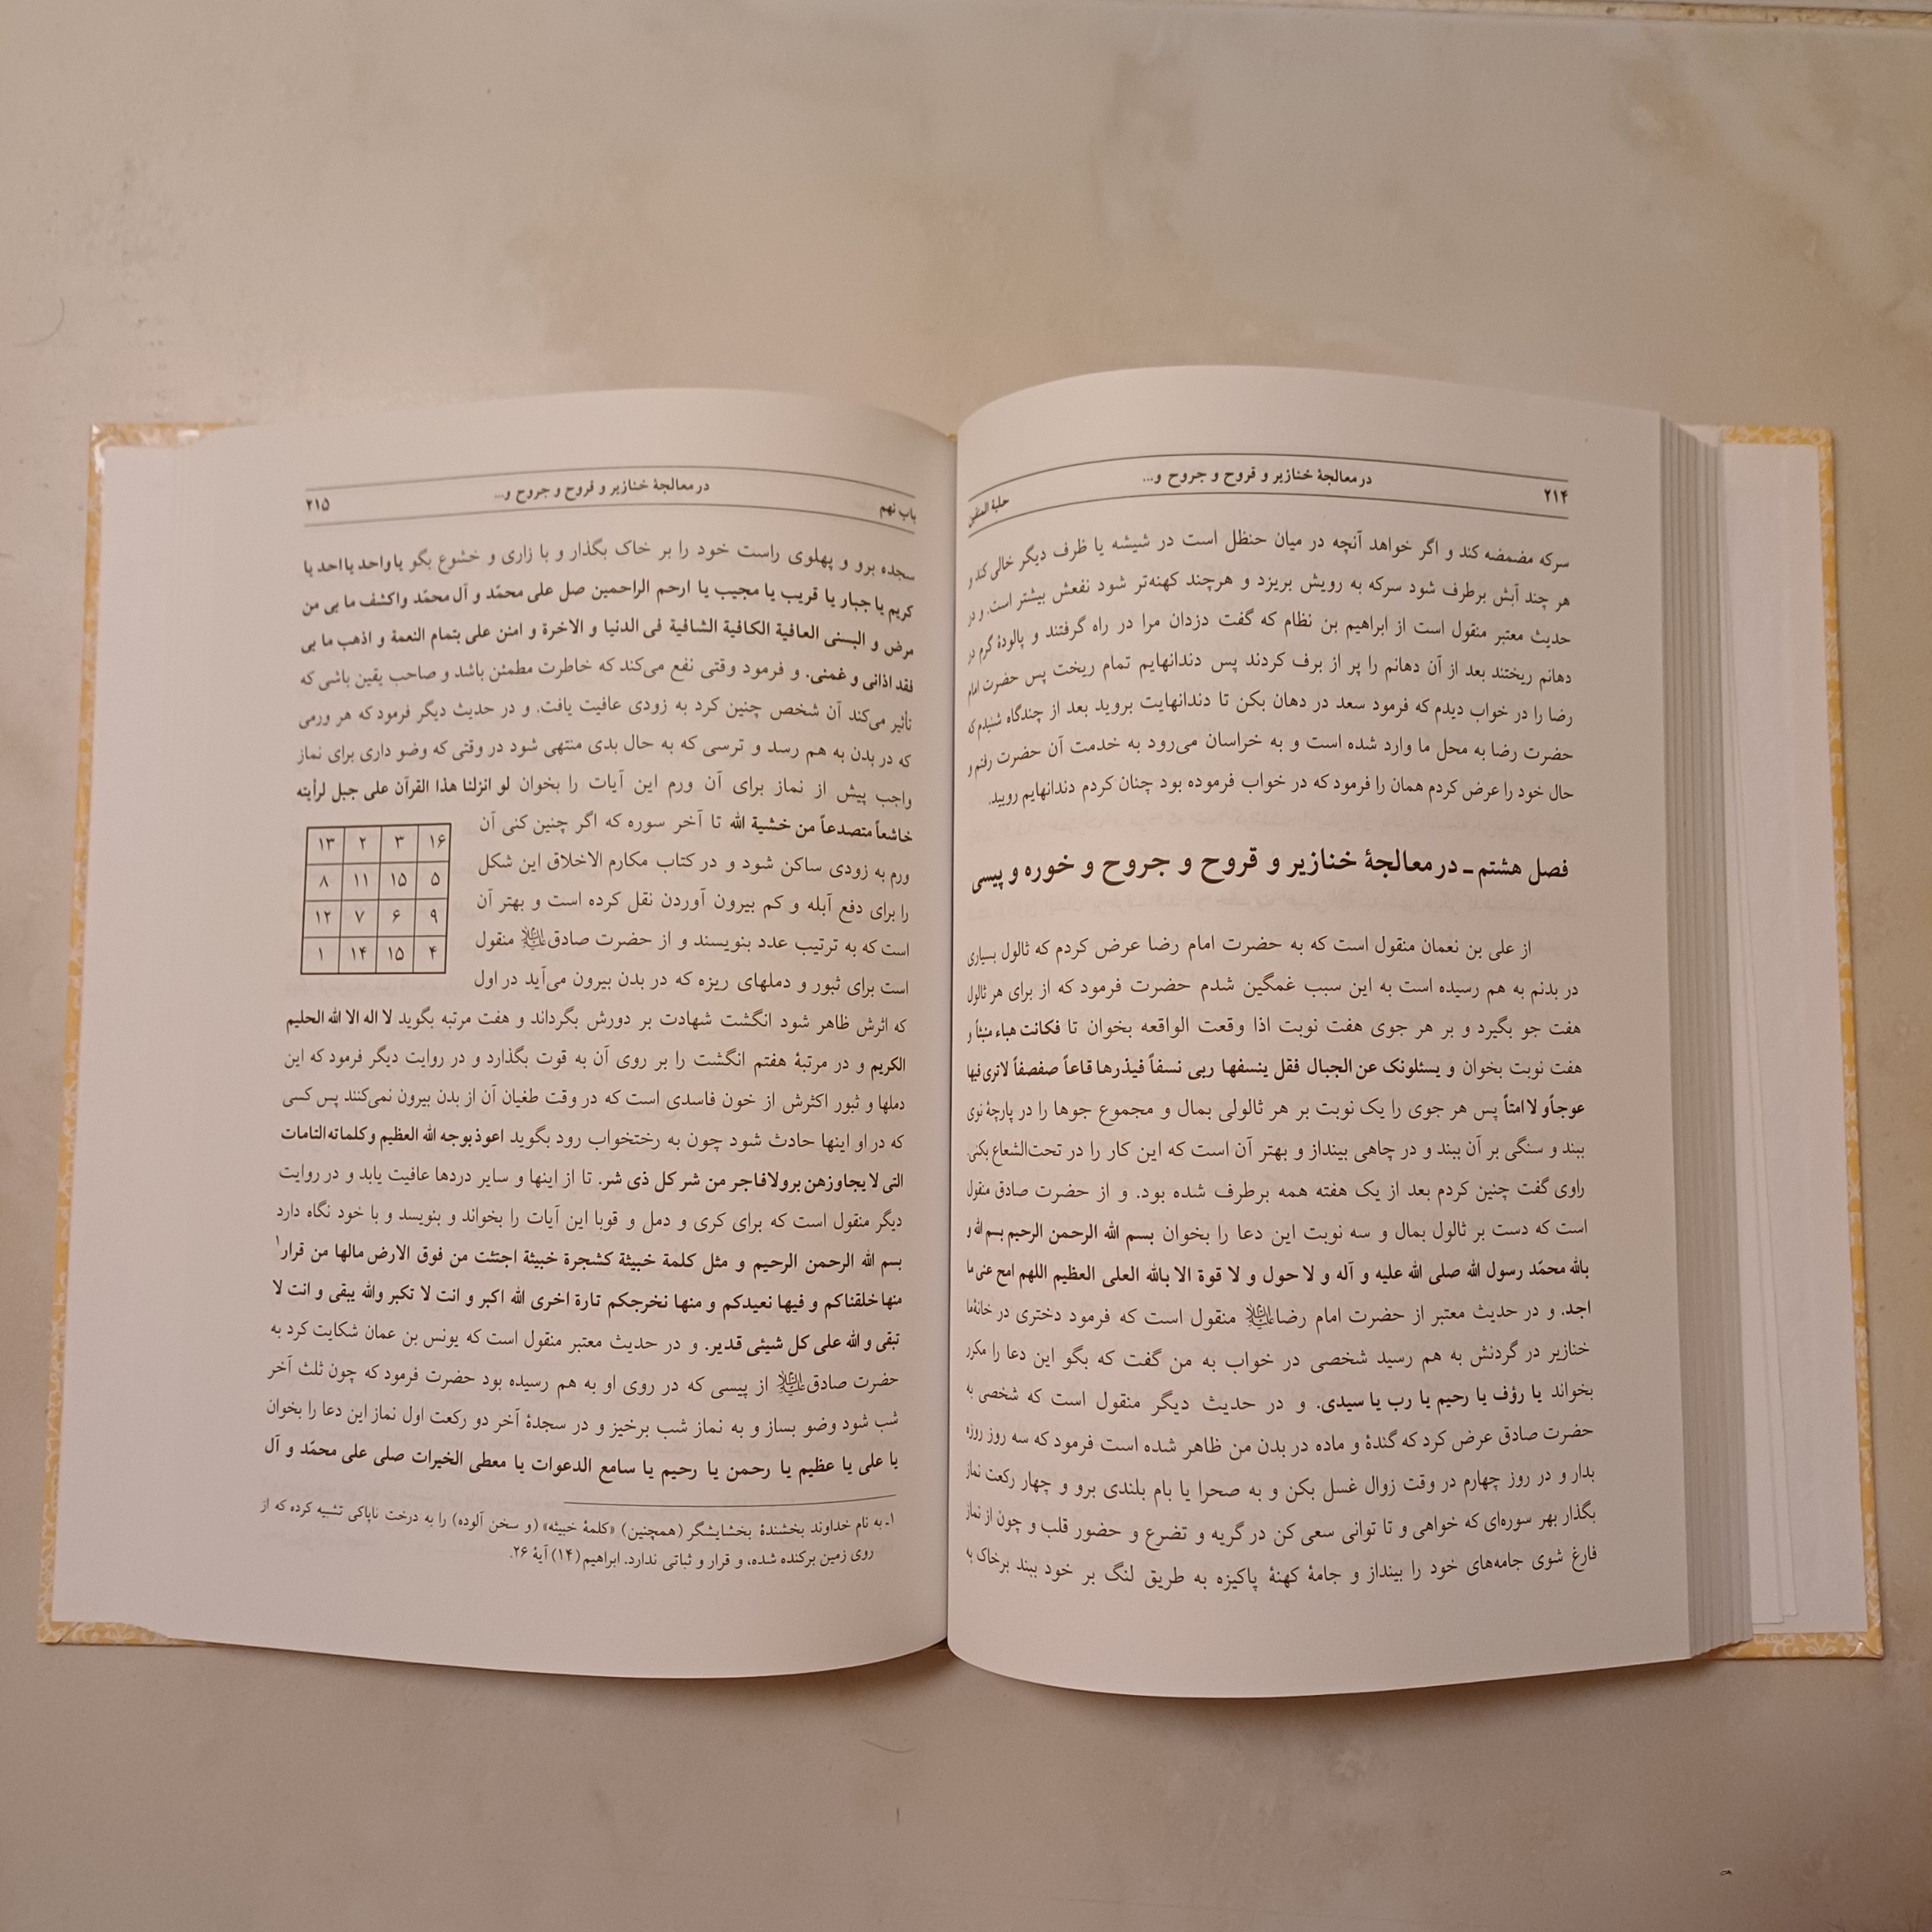 ۲۱۴ در معالجهٔ خنازیر و قروح و جروح و... حلیة المتقین
سرکه مضمضه کند و اگر خواهد آنچه در میان حنظل است در شیشه یا ظرف دیگر خالی کند و
هر چند آبش برطرف شود سرکه به رویش بریزد و هرچند کهنه‌تر شود نفعش بیشتر است. و در
حدیث معتبر منقول است از ابراهیم بن نظام که گفت دزدان مرا در راه گرفتند و پالودهٔ گرم در
دهانم ریختند بعد از آن دهانم را پر از برف کردند پس دندانهایم تمام ریخت پس حضرت امام
رضا را در خواب دیدم که فرمود سعد در دهان بکن تا دندانهایت بروید بعد از چندگاه شنیدم که
حضرت رضا به محل ما وارد شده است و به خراسان می‌رود به خدمت آن حضرت رفتم و
حال خود را عرض کردم همان را فرمود که در خواب فرموده بود چنان کردم دندانهایم رویید.
فصل هشتم ـ در معالجهٔ خنازیر و قروح و جروح و خوره و پیسی
از علی بن نعمان منقول است که به حضرت امام رضا عرض کردم که ثالول بسیاری
در بدنم به هم رسیده است به این سبب غمگین شدم حضرت فرمود که از برای هر ثالول
هفت جو بگیرد و بر هر جوی هفت نوبت اذا وقعت الواقعه بخوان تا فکانت هباء منبثاً و
هفت نوبت بخوان و یسئلونک عن الجبال فقل ینسفها ربی نسفاً فیذرها قاعاً صفصفاً لاتری فیها
عوجاً و لا امتاً پس هر جوی را یک نوبت بر هر ثالولی بمال و مجموع جوها را در پارچهٔ نوی
ببند و سنگی بر آن ببند و در چاهی بینداز و بهتر آن است که این کار را در تحت‌الشعاع بکنی.
راوی گفت چنین کردم بعد از یک هفته همه برطرف شده بود. و از حضرت صادق منقول
است که دست بر ثالول بمال و سه نوبت این دعا را بخوان بسم الله الرحمن الرحیم بسم الله و
بالله محمّد رسول الله صلی الله علیه و آله و لا حول و لا قوة الا بالله العلی العظیم اللهم امح عنی ما
اجد. و در حدیث معتبر از حضرت امام رضا علیه‌السلام منقول است که فرمود دختری در خانهٔ ما
خنازیر در گردنش به هم رسید شخصی در خواب به من گفت که بگو این دعا را مکرر
بخواند یا رؤف یا رحیم یا رب یا سیدی. و در حدیث دیگر منقول است که شخصی به
حضرت صادق عرض کرد که گندهٔ و ماده در بدن من ظاهر شده است فرمود که سه روز روزه
بدار و در روز چهارم در وقت زوال غسل بکن و به صحرا یا بام بلندی برو و چهار رکعت نماز
بگذار بهر سوره‌ای که خواهی و تا توانی سعی کن در گریه و تضرع و حضور قلب و چون از نماز
فارغ شوی جامه‌های خود را بینداز و جامهٔ کهنهٔ پاکیزه به طریق لنگ بر خود ببند برخاک به
باب نهم در معالجهٔ خنازیر و قروح و جروح و... ۲۱۵
سجده برو و پهلوی راست خود را بر خاک بگذار و با زاری و خشوع بگو یا واحد یا احد یا
کریم یا جبار یا قریب یا مجیب یا ارحم الراحمین صل علی محمّد و آل محمّد واکشف ما بی من
مرض و البسنی العافیة الکافیة الشافیة فی الدنیا و الاخرة و امنن علی بتمام النعمة و اذهب ما بی
فقد اذانی و غمنی. و فرمود وقتی نفع می‌کند که خاطرت مطمئن باشد و صاحب یقین باشی که
تأثیر می‌کند آن شخص چنین کرد به زودی عافیت یافت. و در حدیث دیگر فرمود که هر ورمی
که در بدن به هم رسد و ترسی که به حال بدی منتهی شود در وقتی که وضو داری برای نماز
واجب پیش از نماز برای آن ورم این آیات را بخوان لو انزلنا هذا القرآن علی جبل لرأیته
خاشعاً متصدعاً من خشیة الله تا آخر سوره که اگر چنین کنی آن
ورم به زودی ساکن شود و در کتاب مکارم الاخلاق این شکل
را برای دفع آبله و کم بیرون آوردن نقل کرده است و بهتر آن
است که به ترتیب عدد بنویسند و از حضرت صادق علیه‌السلام منقول
است برای ثبور و دملهای ریزه که در بدن بیرون می‌آید در اول
۱۶ ۳ ۲ ۱۳
۵ ۱۵ ۱۱ ۸
۹ ۶ ۷ ۱۲
۴ ۱۵ ۱۴ ۱
که اثرش ظاهر شود انگشت شهادت بر دورش بگرداند و هفت مرتبه بگوید لا اله الا الله الحلیم
الکریم و در مرتبهٔ هفتم انگشت را بر روی آن به قوت بگذارد و در روایت دیگر فرمود که این
دملها و ثبور اکثرش از خون فاسدی است که در وقت طغیان آن از بدن بیرون نمی‌کنند پس کسی
که در او اینها حادث شود چون به رختخواب رود بگوید اعوذ بوجه الله العظیم و کلماته التامات
التی لا یجاوزهن بر ولا فاجر من شر کل ذی شر. تا از اینها و سایر دردها عافیت یابد و در روایت
دیگر منقول است که برای کری و دمل و قوبا این آیات را بخواند و بنویسد و با خود نگاه دارد
بسم الله الرحمن الرحیم و مثل کلمة خبیثة کشجرة خبیثة اجتثت من فوق الارض مالها من قرار۱
منها خلقناکم و فیها نعیدکم و منها نخرجکم تارة اخری الله اکبر و انت لا تکبر والله یبقی و انت لا
تبقی و الله علی کل شیئی قدیر. و در حدیث معتبر منقول است که یونس بن عمان شکایت کرد به
حضرت صادق علیه‌السلام از پیسی که در روی او به هم رسیده بود حضرت فرمود که چون ثلث آخر
شب شود وضو بساز و به نماز شب برخیز و در سجدهٔ آخر دو رکعت اول نماز این دعا را بخوان
یا علی یا عظیم یا رحمن یا رحیم یا سامع الدعوات یا معطی الخیرات صلی علی محمّد و آل
۱ـ به نام خداوند بخشندهٔ بخشایشگر (همچنین) «کلمهٔ خبیثه» (و سخن آلوده) را به درخت ناپاکی تشبیه کرده که از
روی زمین برکنده شده، و قرار و ثباتی ندارد. ابراهیم (۱۴) آیهٔ ۲۶.